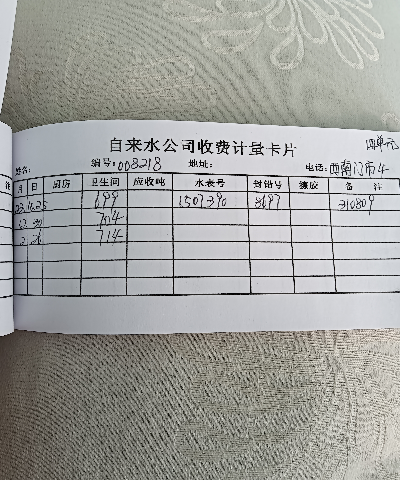 自来水公司收费计量卡片
四单元
姓名: 编号: 008218 地址: 电话: 西南门市4
注 月 日 厨房 卫生间 应收吨 水表号 封铅号 镶胶 备 注
23.10.25 699 1507390 8697 310809
12 704
2 26 714